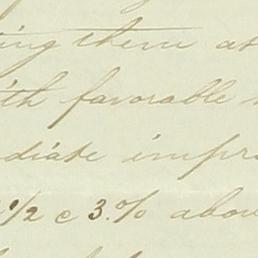 ing them as
ith favorable
diate impro
1/2 @ 3.% abov